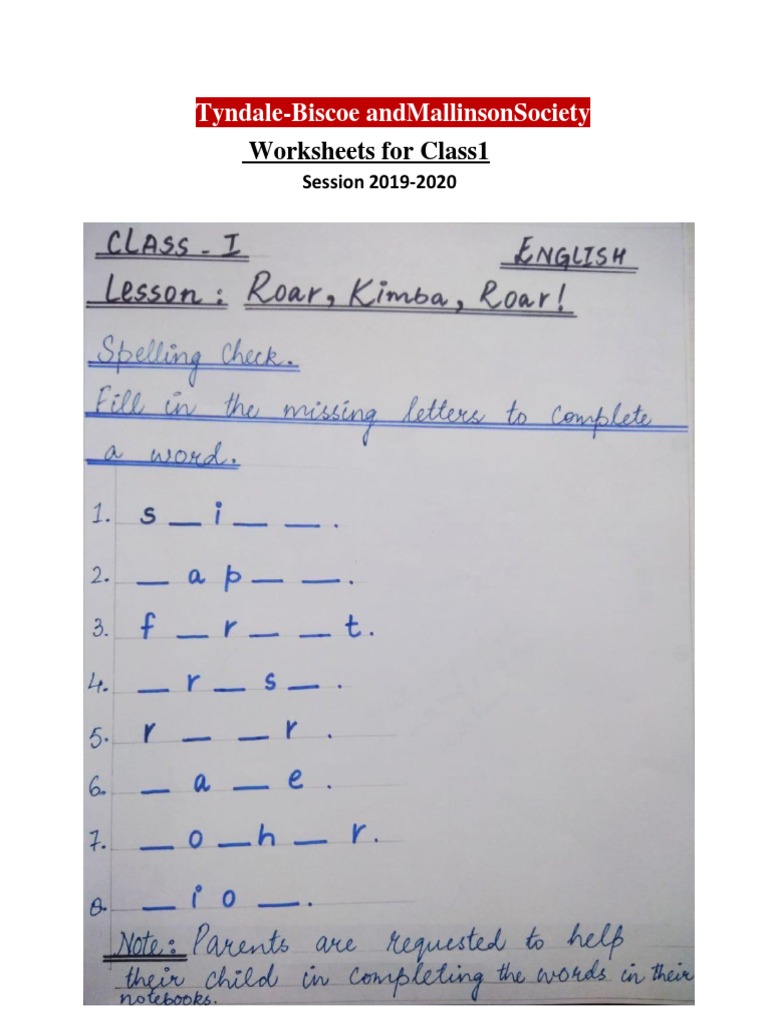 Tyndale-Biscoe andMallinsonSociety
Worksheets for Class1
Session 2019-2020
CLASS - I ENGLISH
Lesson: Roar, Kimba, Roar!
Spelling Check.
Fill in the missing letters to complete
a word.
1. s _ i _ _ .
2. _ a p _ _ .
3. f _ r _ _ t.
4. _ r _ s _ .
5. r _ _ r .
6. _ a _ e .
7. _ o _ h _ r.
8. _ i o _ .
Note: Parents are requested to help
their child in completing the words in their
notebooks.